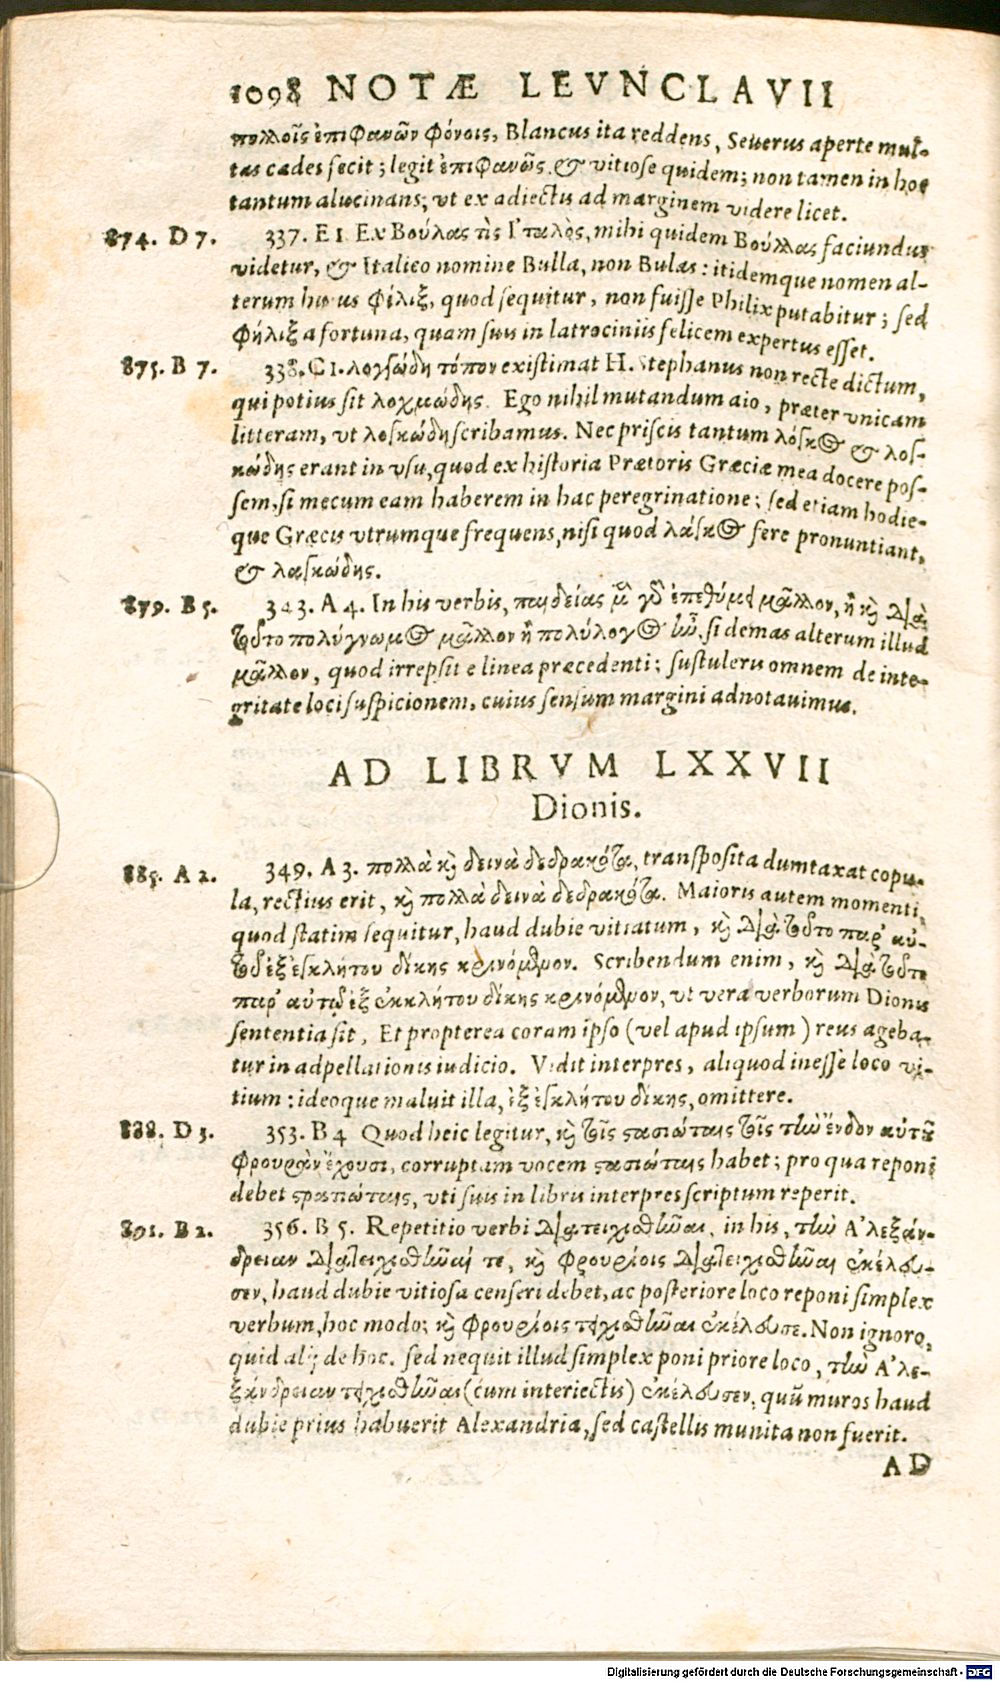 1098 NOTÆ LEVNCLAVII
πολλοῖς ἐπιφανῶν φόνοις, Blancus ita reddens, Seuerus aperte mul-
tas cædes fecit; legit ἐπιφανῶς. & vitiose quidem; non tamen in hoc
tantum alucinans; vt ex adiectis ad marginem videre licet.
874. D 7. 337. E 1. Ex Βούλας τὶς Ἰταλὸς, mihi quidem Βούλλας faciundus
videtur, & Italico nomine Bulla, non Bulas: itidemque nomen al-
terum huius Φίλιξ, quod sequitur, non fuisse Philix putabitur; sed
Φήλιξ a fortuna, quam suis in latrociniis felicem expertus esset.
875. B 7. 338. C 1. λογσώδη τόπον existimat H. Stephanus non recte dictum,
qui potius sit λοχμώδης. Ego nihil mutandum aio, præter vnicam
litteram, vt λοσκώδη scribamus. Nec priscis tantum λόσκος & λοσ-
κώδης erant in vsu, quod ex historia Prætoris Græciæ mea docere pos-
sem, si mecum eam haberem in hac peregrinatione; sed etiam hodie-
que Græcis vtrumque frequens, nisi quod λάσκος fere pronuntiant,
& λασκώδης.
879. B 5. 343. A 4. In his verbis, παιδείας μὲν γὰρ ἐπεθύμει μᾶλλον, ἢ καὶ διὰ
τοῦτο πολύγνωμος μᾶλλον ἢ πολύλογος ἦν. si demas alterum illud
μᾶλλον, quod irrepsit e linea præcedenti; sustuleris omnem de inte-
gritate loci suspicionem, cuius sensum margini adnotauimus.
AD LIBRVM LXXVII
Dionis.
885. A 2. 349. A 3. πολλὰ καὶ δεινὰ δεδρακότα, transposita dumtaxat copu-
la, rectius erit, καὶ πολλὰ δεινὰ δεδρακότα. Maioris autem momenti,
quod statim sequitur, haud dubie vitiatum, καὶ διὰ τοῦτο παρ' αὐ-
τοῦ ἐξ ἐσκλήτου δίκης κρινόμενον. Scribendum enim, καὶ διὰ τοῦτο
παρ' αὐτῷ ἐξ ἐκκλήτου δίκης κρινόμενον, vt vera verborum Dionis
sententia sit, Et propterea coram ipso (vel apud ipsum) reus ageba-
tur in adpellationis iudicio. Vidit interpres, aliquod inesse loco vi-
tium: ideoque maluit illa, ἐξ ἐσκλήτου δίκης, omittere.
888. D 3. 353. B 4 Quod heic legitur, καὶ τοῖς στασιώταις τοῖς τὴν ἔνδον αὐτῶν
φρουρὰν ἔχουσι, corruptam vocem στασιώταις habet; pro qua reponi
debet στρατιώταις, vti suis in libris interpres scriptum reperit.
891. B 2. 356. B 5. Repetitio verbi διατειχισθῆναι, in his, τὴν Ἀλεξάν-
δρειαν διατειχισθῆναί τε, καὶ φρουρίοις διατειχισθῆναι ἐκέλευ-
σεν, haud dubie vitiosa censeri debet, ac posteriore loco reponi simplex
verbum, hoc modo; καὶ φρουρίοις τειχισθῆναι ἐκέλευσε. Non ignoro,
quid alij de hoc. sed nequit illud simplex poni priore loco, τὴν Ἀλε-
ξάνδρειαν τειχισθῆναι (cum interiectis) ἐκέλευσεν; quũ muros haud
dubie prius habuerit Alexandria, sed castellis munita non fuerit.
AD
Digitalisierung gefördert durch die Deutsche Forschungsgemeinschaft - DFG